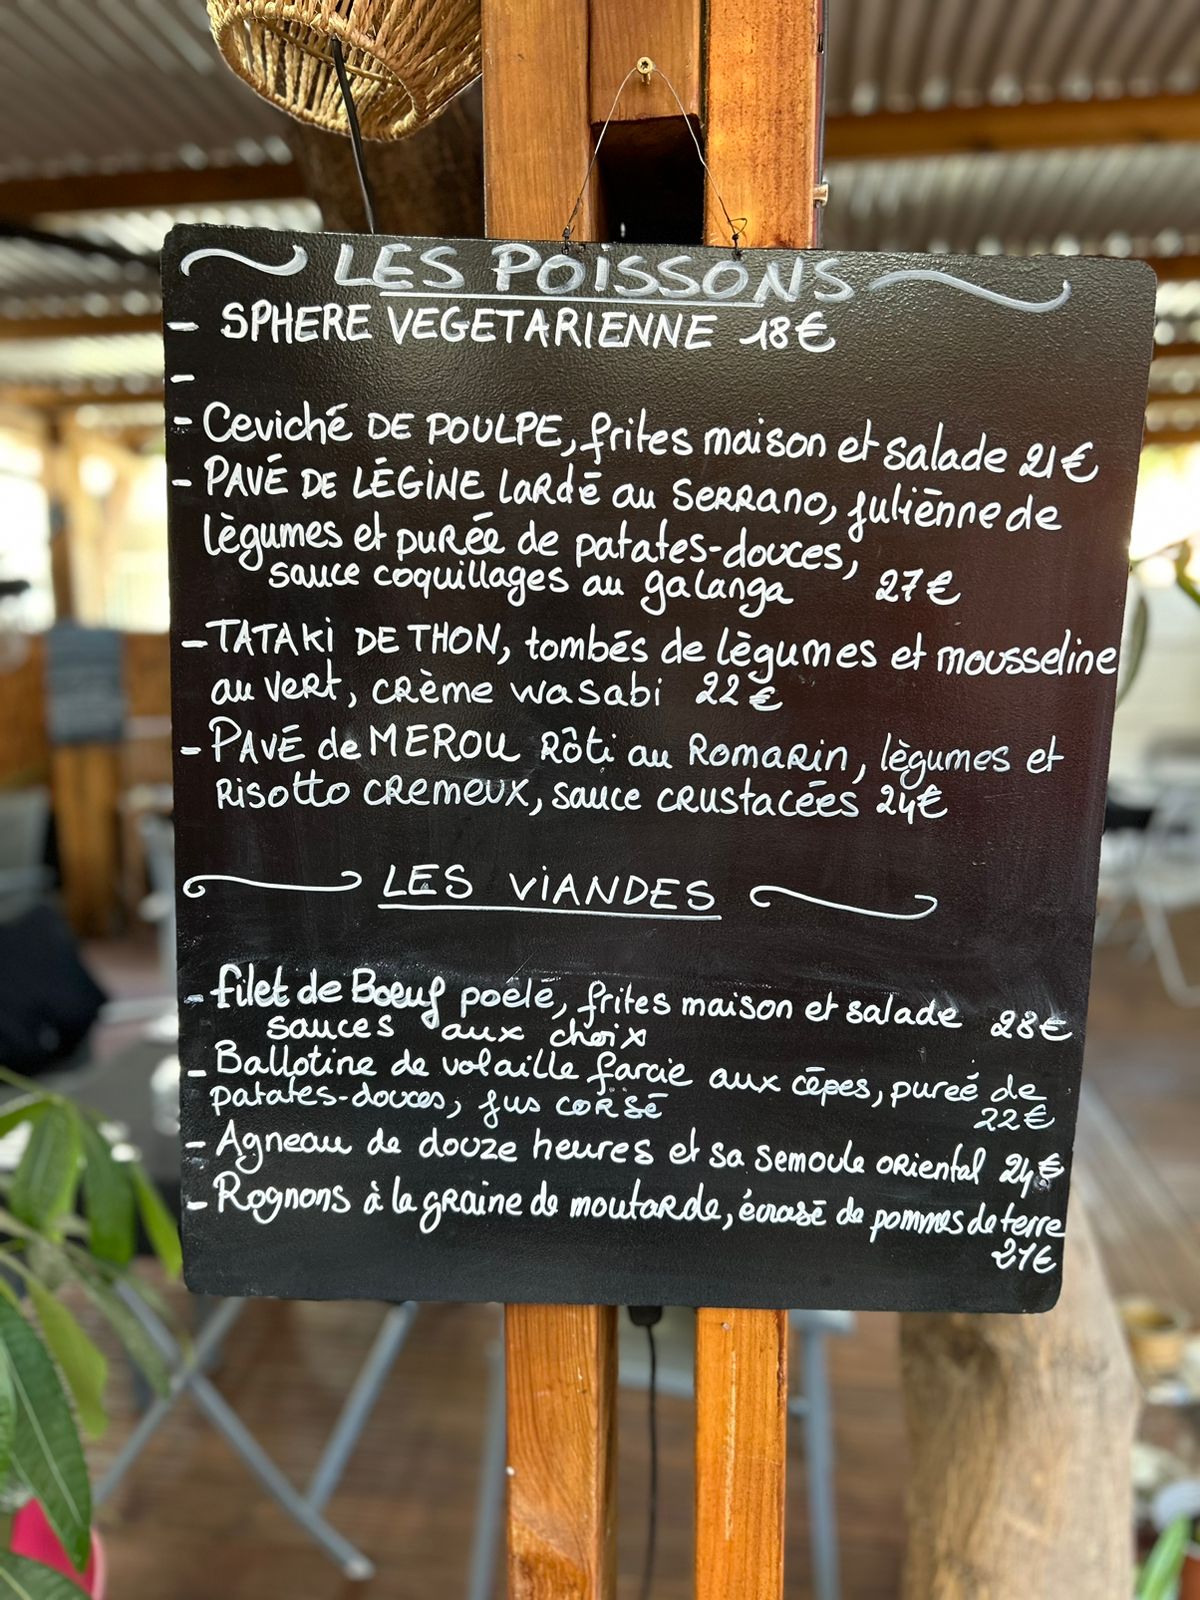 LES POISSONS
- SPHERE VEGETARIENNE 18€
-
- Ceviché DE POULPE, frites maison et salade 21€
- PAVÉ DE LÉGINE LaRdé au SeRRANO, juliénne de
lègumes et puRée de patates-douces,
sauce coquillages au galanga 27€
- TATAKi DE THON, tombés de lègumes et mousseline
au veRt, cRème wasabi 22€
- PAVÉ de MEROU Rôti au RomaRin, lègumes et
Risotto cRemeux, sauce cRustacées 24€
LES ViANDES
- filet de Boeuf poelé, frites maison et salade 28€
sauces aux choix
- Ballotine de volaille farcie aux cépes, pureé de
patates-douces, jus coRsé 22€
- Agneau de douze heures et sa semoule oRiental 24€
- Rognons à la gRaine de moutaRde, écrasé de pommes de terre
21€